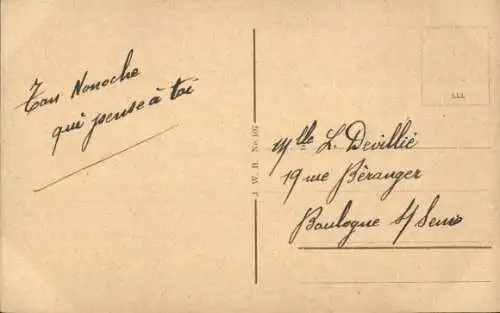 Ton Nonoche
qui pense à toi
J. W. B. No. 107
Mlle L. Devillié
19 rue Béranger
Boulogne s/ Seine